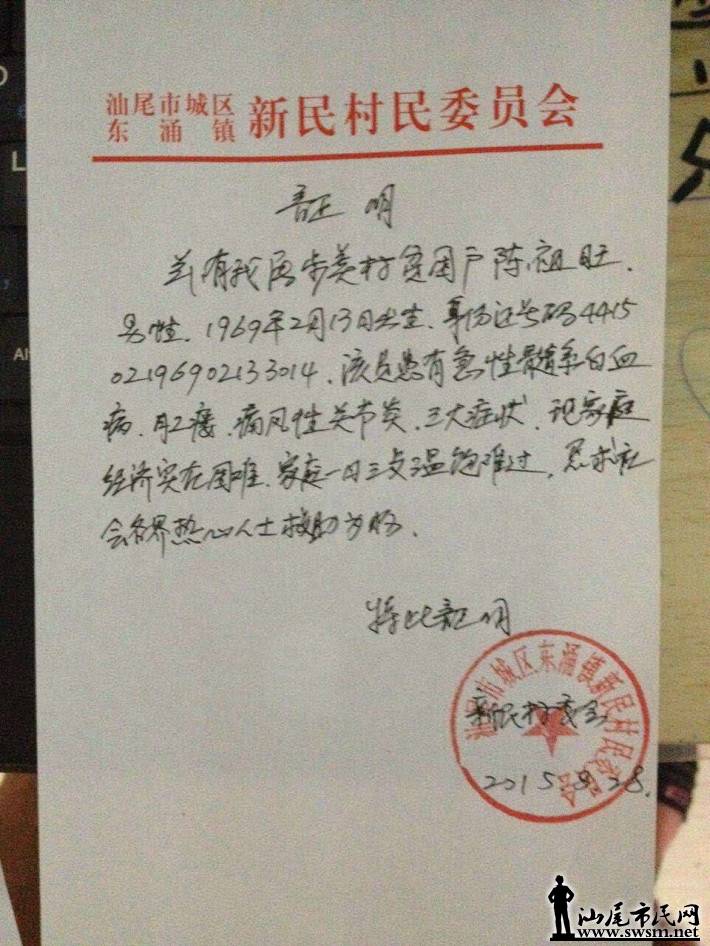 汕尾市城区
东涌镇 新民村民委员会
证明
兹有我居步美村贫困户陈祖旺.
男性.1969年2月13日出生.身份证号码4415
02196902133014.该员患有急性髓系白血
病.肛瘘.痛风性关节炎.三大症状.现家庭
经济实在困难.家庭一日三餐温饱难过,恳求社
会各界热心人士救助为盼.
特此证明
新民村委会
2015.9.28.
汕尾市城区东涌镇新民村民委员会
汕尾市民网
www.swsm.net